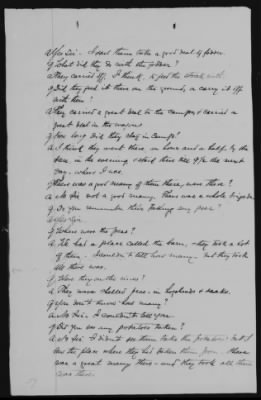 A Yes Sir - I saw them take a good deal of fodder.
Q What did they do with the fodder?
A They carried it off, I think, to feed the stock with.
Q Did they feed it there on the ground, or carry it off
with them?
A They carried a great deal to the camps & carried a
great deal in the wagons.
Q How long did they stay in camp?
A I think they went there an hour and a half by the
sun in the evening & started there till 9 the next
day - when I was.
Q There was a good many of them there, was there?
A No Sir not a good many. There was a whole brigade.
Q Do you remember their finding any peas?
A Yes Sir
Q Where were the peas?
A We had a place called the barn, & they took a lot
of them - I couldn't tell how many - but they took
all there was.
Q Were they on the vines?
A They were shelled peas - in hogsheads & sacks.
Q You don't know how many?
A No Sir I couldn't tell you.
Q Did you see any potatoes taken?
A No Sir I didn't see them take the potatoes: but I
saw the place where they had taken them from. There
was a great many there - and they took all there
was there.